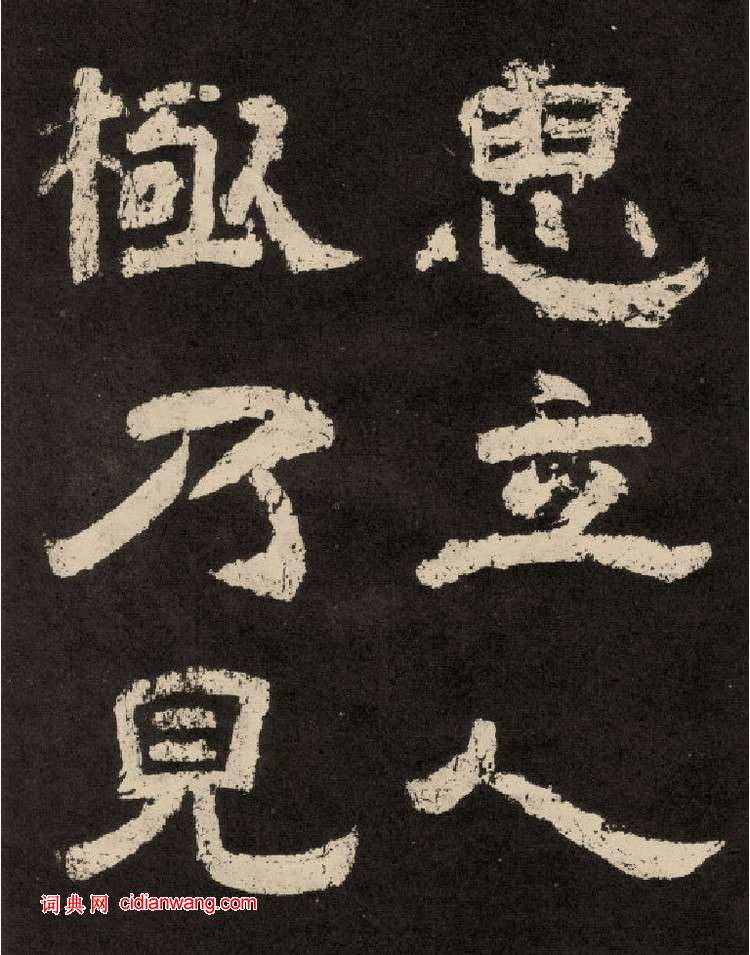 思立人
極乃見
词典网 cidianwang.com